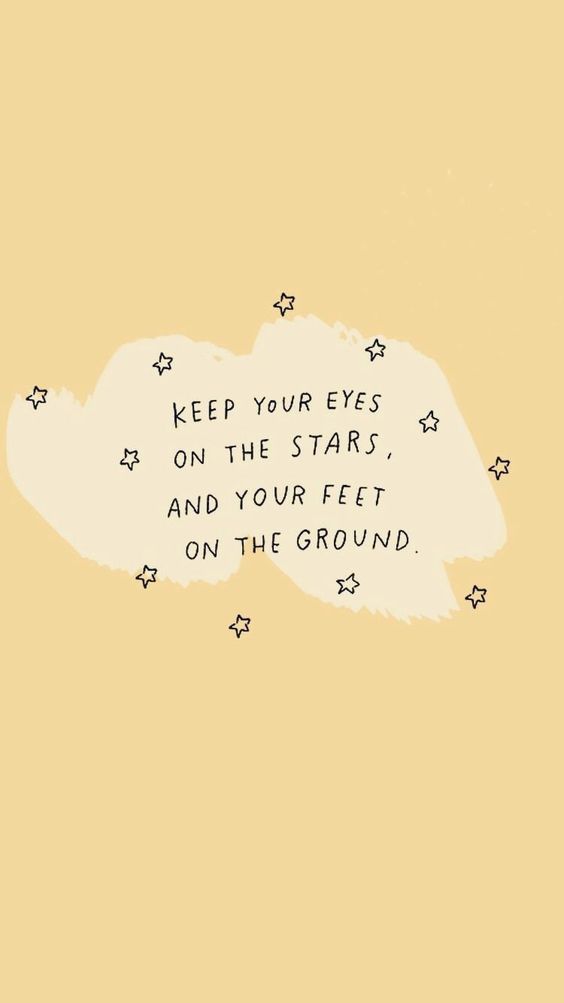 KEEP YOUR EYES
ON THE STARS,
AND YOUR FEET
ON THE GROUND.